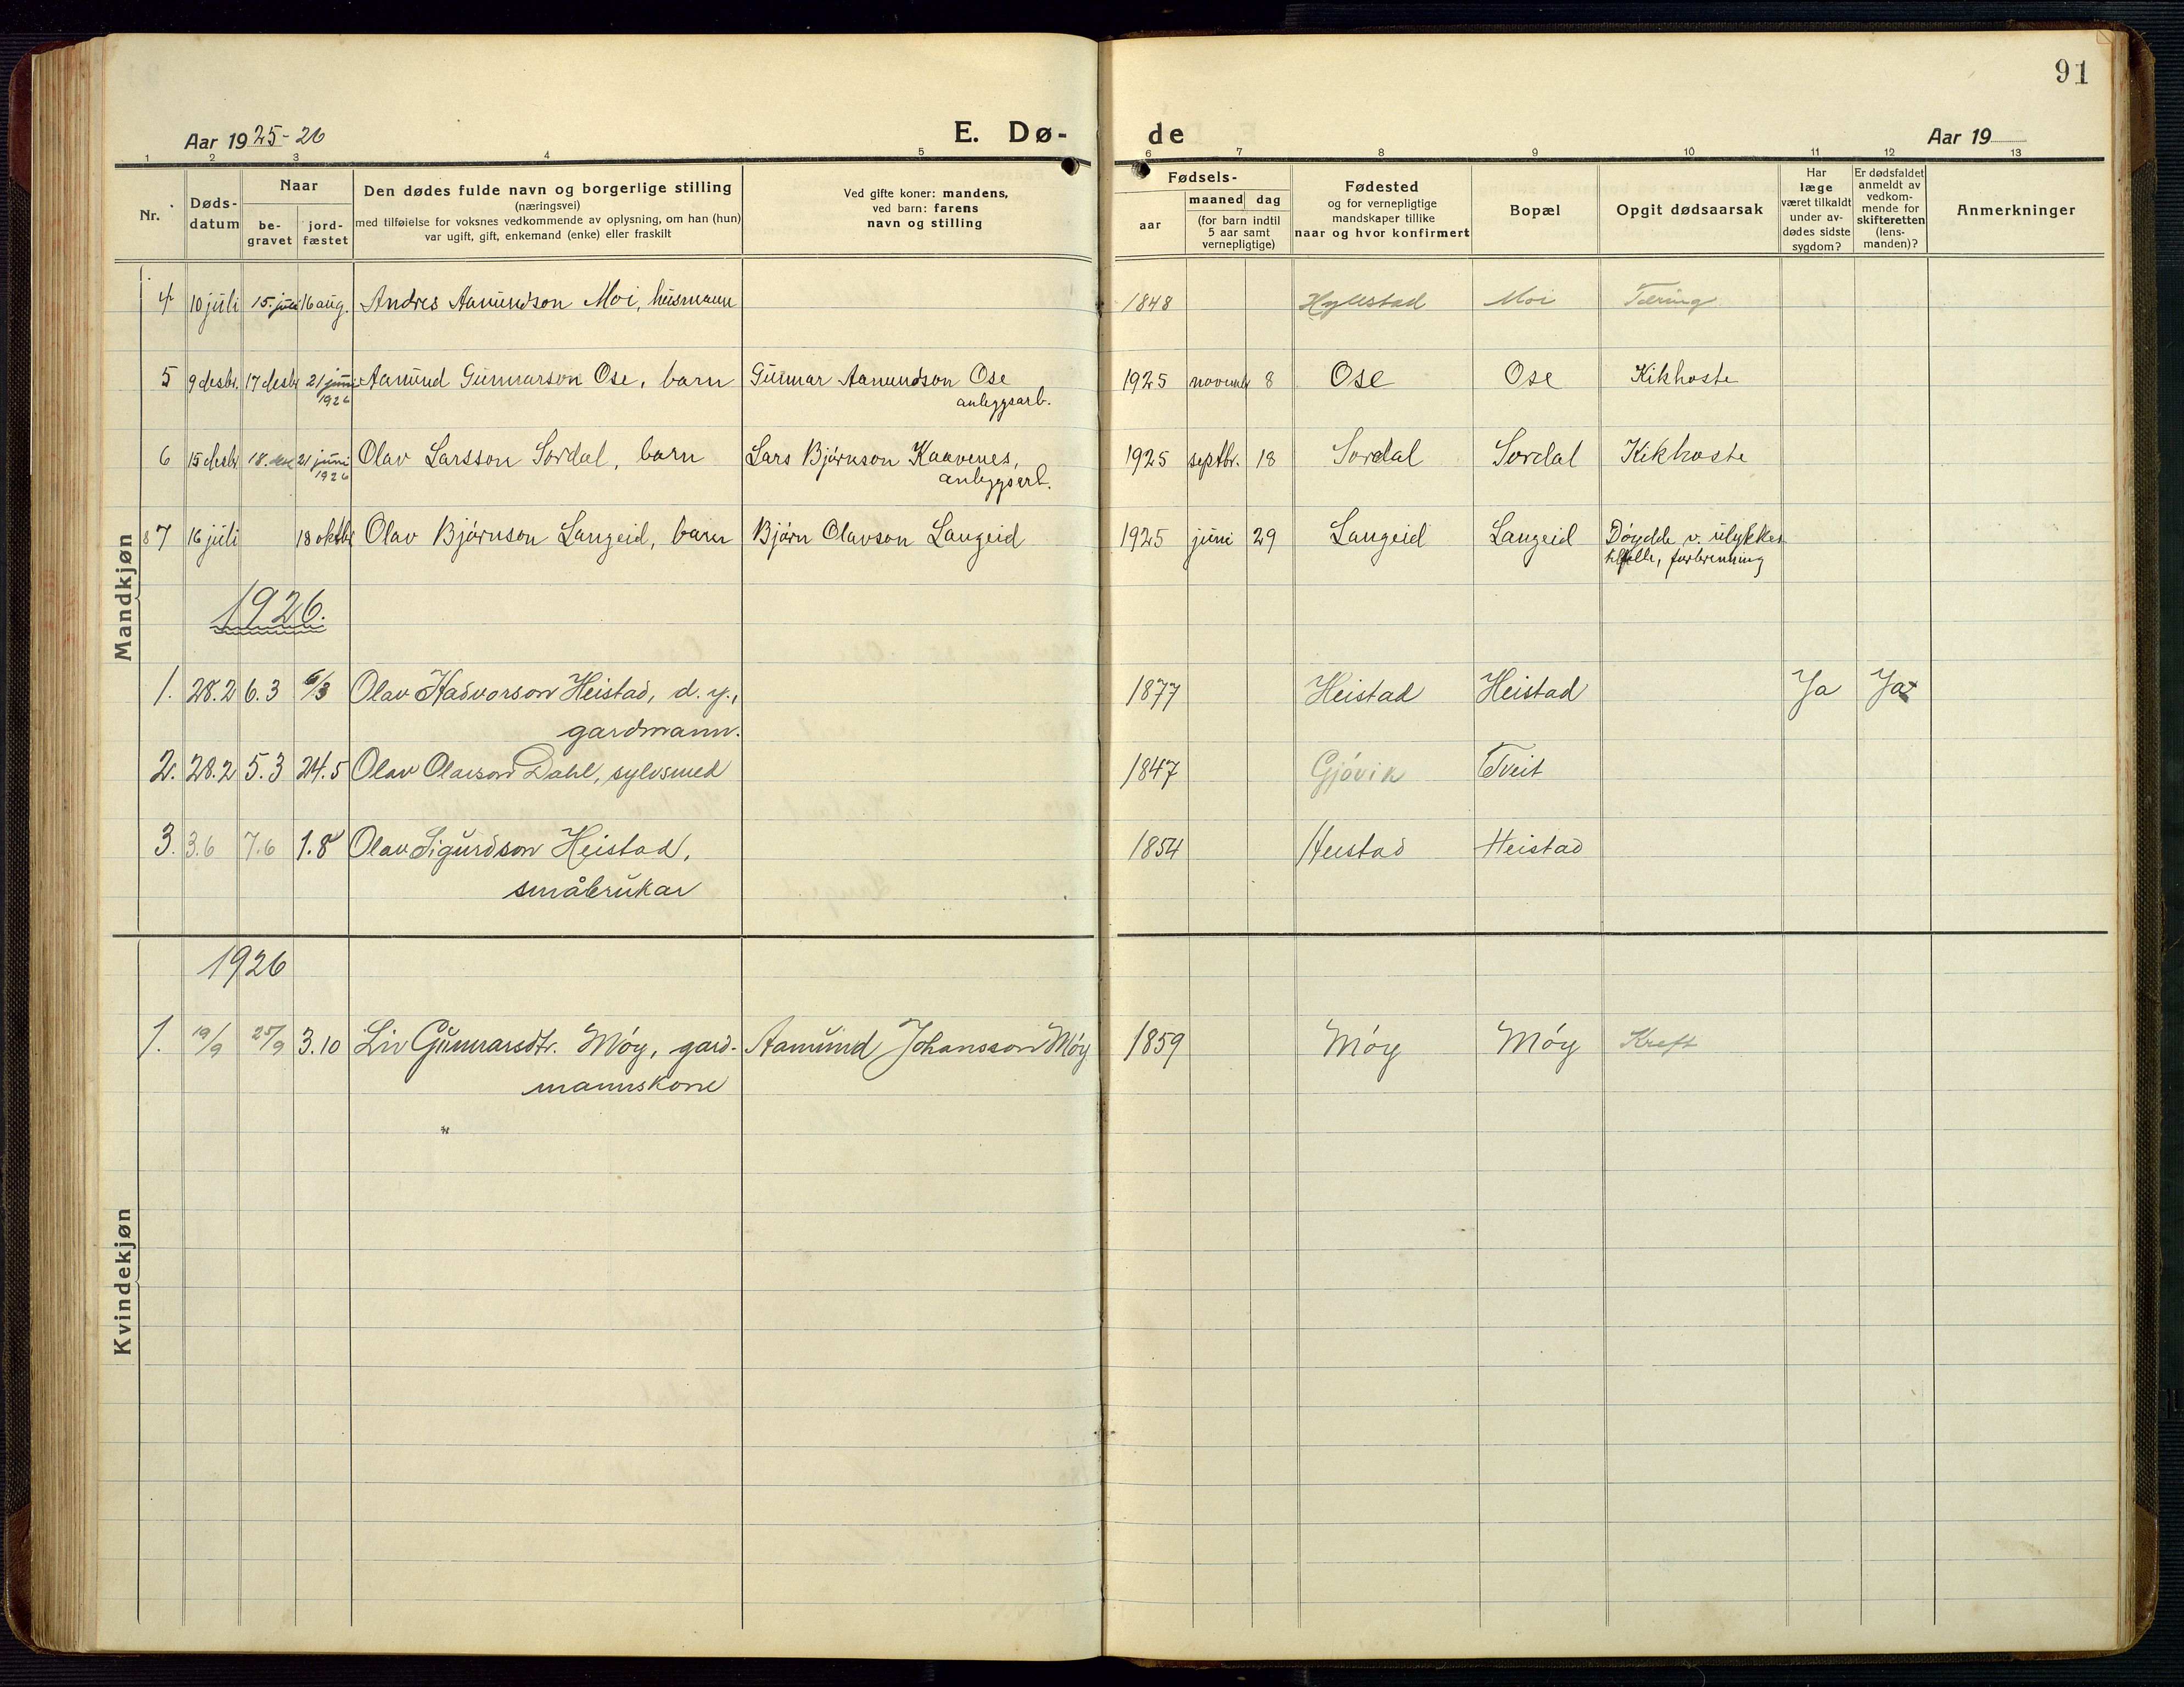 91
Aar 1925-26
E. Dø-
de
Aar 19
1 2 3 4 5 6 7 8 9 10 11 12 13
Nr.
Døds-
datum
Naar
be-
gravet
jord-
fæstet
Den dødes fulde navn og borgerlige stilling
(næringsvei)
med tilføielse for voksnes vedkommende av oplysning, om han (hun)
var ugift, gift, enkemand (enke) eller fraskilt
Ved gifte koner: mandens,
ved barn: farens
navn og stilling
Fødsels-
aar
maaned dag
(for barn indtil
5 aar samt
vernepligtige)
Fødested
og for vernepligtige
mandskaper tillike
naar og hvor konfirmert
Bopæl
Opgit dødsaarsak
Har
læge
været tilkaldt
under av-
dødes sidste
sygdom?
Er dødsfaldet
anmeldt av
vedkom-
mende for
skifteretten
(lens-
manden)?
Anmerkninger
Mandkjøn
4 10 juli 15. juli 16 aug. Andres Aamundson Moi, husmann 1848 Hyllestad Moi Tæring
5 9 desbr. 17 desbr 21 juni Aamund Gunnarson Ose, barn Gunnar Aamundson Ose 1925 novembr 8 Ose Ose Kikhoste
1926 anleggsarb.
6 15 desbr 18. des 21 juni Olav Larsson Sordal, barn Lars Bjørnson Kaavenes, 1925 septbr. 18 Sordal Sordal Kikhoste
1926 anleggsarb.
8 7 16 juli 18 oktbr Olav Bjørnson Langeid, barn Bjørn Olavson Langeid 1925 juni 29 Langeid Langeid Døydde v. ulykkes
tilfelle, forbrenning
1926.
1. 28.2 6.3 6/3 Olav Hasvorson Heistad, d. y., 1877 Heistad Heistad Ja Ja
gardmann.
2. 28.2 5.3 24.5 Olav Olavson Dahl, sylvsmed 1847 Gjøvik Tveit
3. 3.6 7.6 1.8 Olav Sigurdson Heistad, 1854 Heistad Heistad
småbrukar
Kvindekjøn
1926
1. 19/9 25/9 3.10 Liv Gunnarsdtr. Møy, gard- Aamund Johansson Møy 1859 Møy Møy Kreft
mannskone